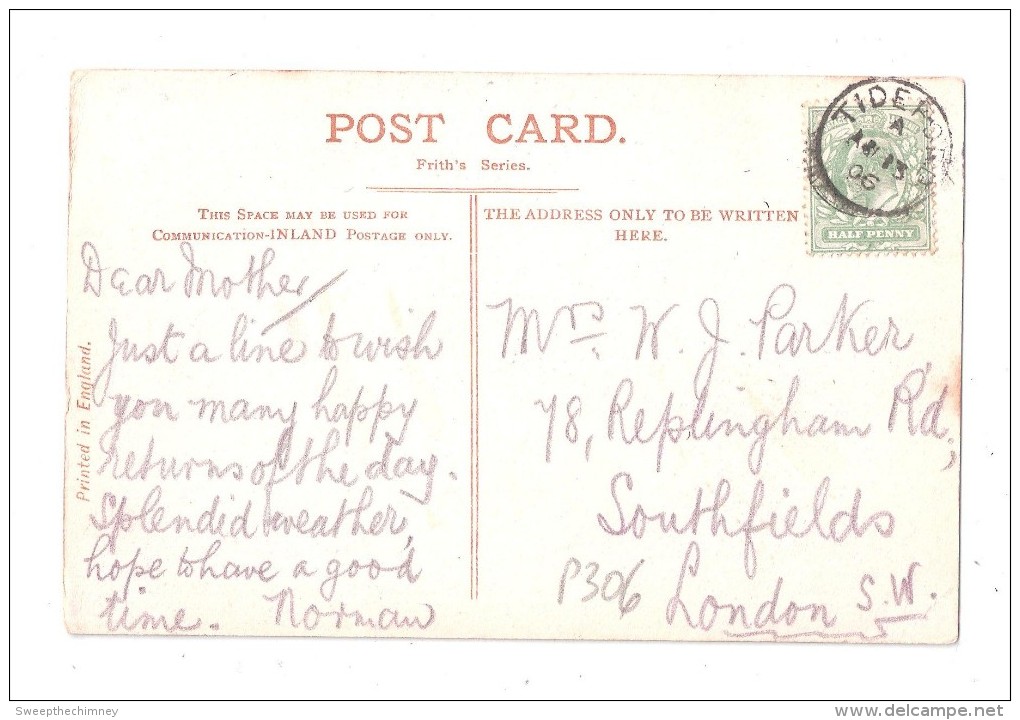 POST CARD.
Frith's Series.
THIS SPACE MAY BE USED FOR
COMMUNICATION-INLAND POSTAGE ONLY.
THE ADDRESS ONLY TO BE WRITTEN
HERE.
TIDEFORD
A
13
06
HALF PENNY
Printed in England.
Dear Mother
Just a line to wish
you many happy
returns of the day.
Splendid weather,
hope to have a good
time. Norman
Mrs. W. J. Parker,
78, Replingham Rd,
Southfields
London S.W.
P306
Sweepthechimney
www.delcampe.net